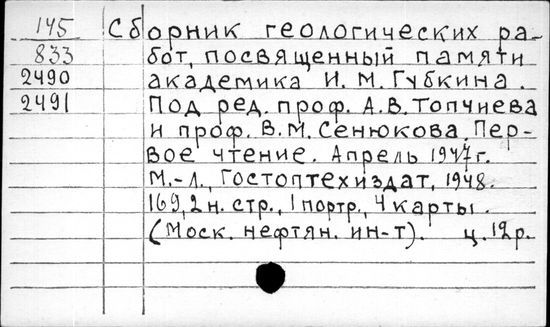 145 Сборник геологических ра-
833 бот, посвященный памяти
2490 академика И. М. Губкина.
2491 Под ред. проф. А. В. Топчиева
и проф. В. М. Сенюкова. Пер-
вое чтение. Апрель 1947 г.
М.-Л., Гостоптехиздат, 1948.
169, 2 н. стр., 1 портр., 4 карты.
(Моск. нефтян. ин-т). ц. 12 р.